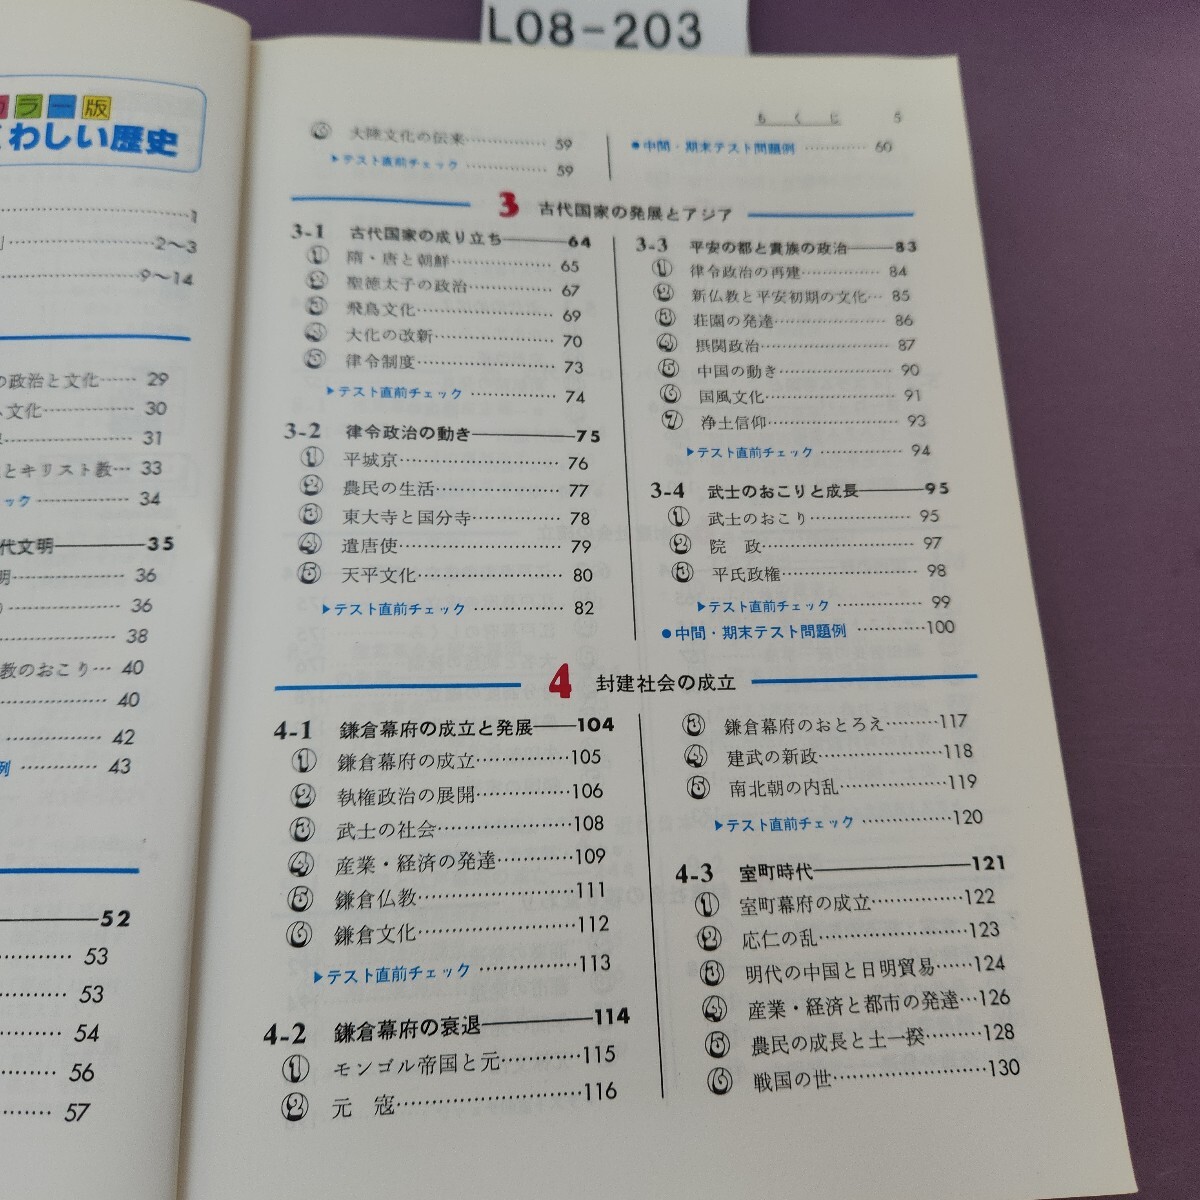 L08-203
ラー版
くわしい歴史
1
2〜3
9〜14
の政治と文化…… 29
文化 30
31
とキリスト教… 33
ック 34
代文明 35
明 36
36
38
教のおこり… 40
40
42
例 43
52
53
53
54
56
57
もくじ 5
③ 大陸文化の伝来 59
▶テスト直前チェック 59
●中間・期末テスト問題例 60
3 古代国家の発展とアジア
3-1 古代国家の成り立ち 64
① 隋・唐と朝鮮 65
② 聖徳太子の政治 67
③ 飛鳥文化 69
④ 大化の改新 70
⑤ 律令制度 73
▶テスト直前チェック 74
3-2 律令政治の動き 75
① 平城京 76
② 農民の生活 77
③ 東大寺と国分寺 78
④ 遣唐使 79
⑤ 天平文化 80
▶テスト直前チェック 82
3-3 平安の都と貴族の政治 83
① 律令政治の再建 84
② 新仏教と平安初期の文化… 85
③ 荘園の発達 86
④ 摂関政治 87
⑤ 中国の動き 90
⑥ 国風文化 91
⑦ 浄土信仰 93
▶テスト直前チェック 94
3-4 武士のおこりと成長 95
① 武士のおこり 95
② 院 政 97
③ 平氏政権 98
▶テスト直前チェック 99
●中間・期末テスト問題例 100
4 封建社会の成立
4-1 鎌倉幕府の成立と発展 104
① 鎌倉幕府の成立 105
② 執権政治の展開 106
③ 武士の社会 108
④ 産業・経済の発達 109
⑤ 鎌倉仏教 111
⑥ 鎌倉文化 112
▶テスト直前チェック 113
4-2 鎌倉幕府の衰退 114
① モンゴル帝国と元 115
② 元 寇 116
③ 鎌倉幕府のおとろえ 117
④ 建武の新政 118
⑤ 南北朝の内乱 119
▶テスト直前チェック 120
4-3 室町時代 121
① 室町幕府の成立 122
② 応仁の乱 123
③ 明代の中国と日明貿易 124
④ 産業・経済と都市の発達… 126
⑤ 農民の成長と土一揆 128
⑥ 戦国の世 130